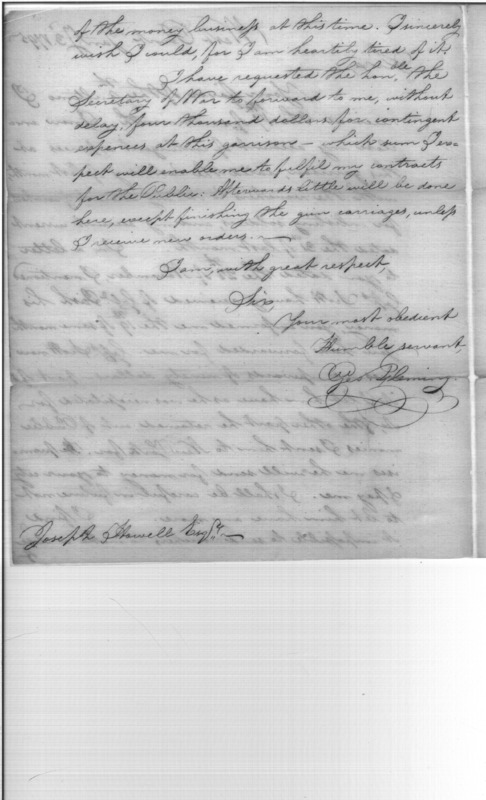 of the money business at this time. I sincerely
wish I could, for I am heartily tired of it.
I have requested the honble. the
Secretary of War to forward to me, without
delay, four thousand dollars for contingent
expences at this garrison — which sum I ex-
pect will enable me to fulfil my contracts
for the Public. Afterwards little will be done
here, except finishing the gun carriages, unless
I receive new orders. —
I am, with great respect,
Sir,
Your most obedient
Humble servant,
Geo. Fleming
Joseph Howell Esqr. —